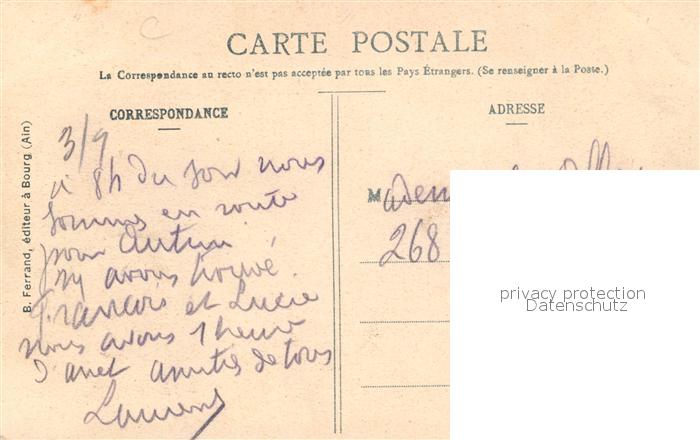 C
CARTE POSTALE
La Correspondance au recto n'est pas acceptée par tous les Pays Étrangers. (Se renseigner à la Poste.)
CORRESPONDANCE
3/9
à 8h du soir nous
sommes en route
pour Autun
j'y avons trouvé
François et Lucie
nous avons 1 heure
d'arret amitiés de tous
Laurent
B. Ferrand, éditeur à Bourg (Ain)
ADRESSE
M
268
privacy protection
Datenschutz